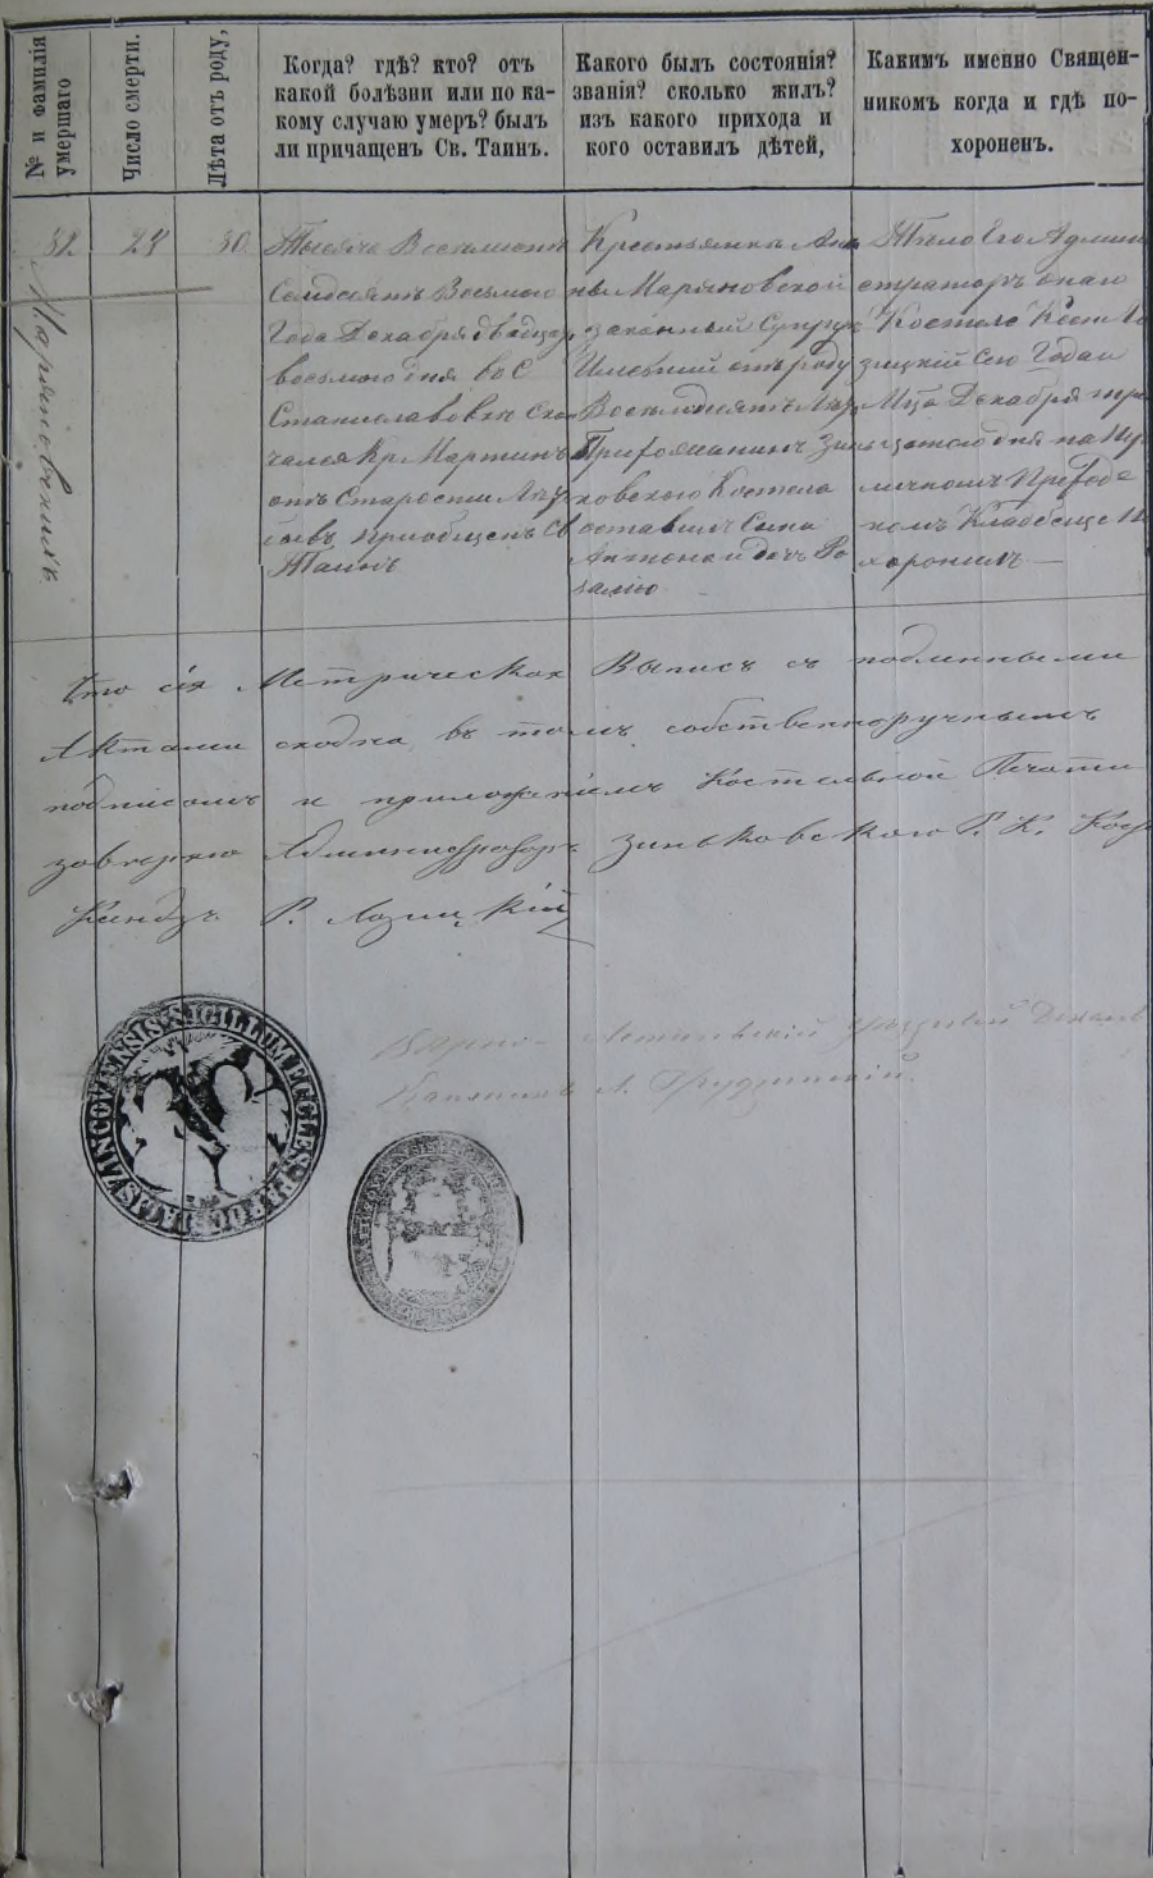 № и фамилія
умершаго
Число смерти.
Лѣта отъ роду,
Когда? гдѣ? кто? отъ
какой болѣзни или по ка-
кому случаю умеръ? былъ
ли причащенъ Св. Таинъ.
Какого былъ состоянія?
званія? сколько жилъ?
изъ какого прихода и
кого оставилъ дѣтей,
Какимъ именно Священ-
никомъ когда и гдѣ по-
хороненъ.
32.
Маряновскій
28
80.
Тысяча Восемьсотъ
Семдесятъ Восьмого
Года Декабря двадцать
восьмого дня въ С
Станиславовкѣ Скон
чался Кр. Мартинъ
отъ Старости Лѣт
бывъ приобщенъ Св
Таинъ
Крестьянки Ан
ны Маряновской
законный Супругъ
Имѣвший отъ роду
Восемьдесятъ Лѣтъ
Прихожанинъ Зинь
ковскаго Костела
оставилъ Сына
Антона и дочь Ро
залію
Тѣло Его Админи
страторъ онаго
Костела Ксендз Ло
зицкій Сего Года и
Мца Декабря три
цатого дня на
Приход
комъ Кладбище По
хоронилъ —
Что сія Метрическая Выпись съ подлинными
Актами сходна, въ томъ собственноручнымъ
подписомъ и приложеніемъ Костельной Печати
завѣряю Администраторъ Зиньковского Р. К. Кост
Ксендзъ Р. Лозицкій
Вѣрно - Летичевскій Уѣздный Декан
Каноникъ А. Грудзинскій.
SIGILLUM ECCLES: PAROCHIALIS ZINCOVIENSIS